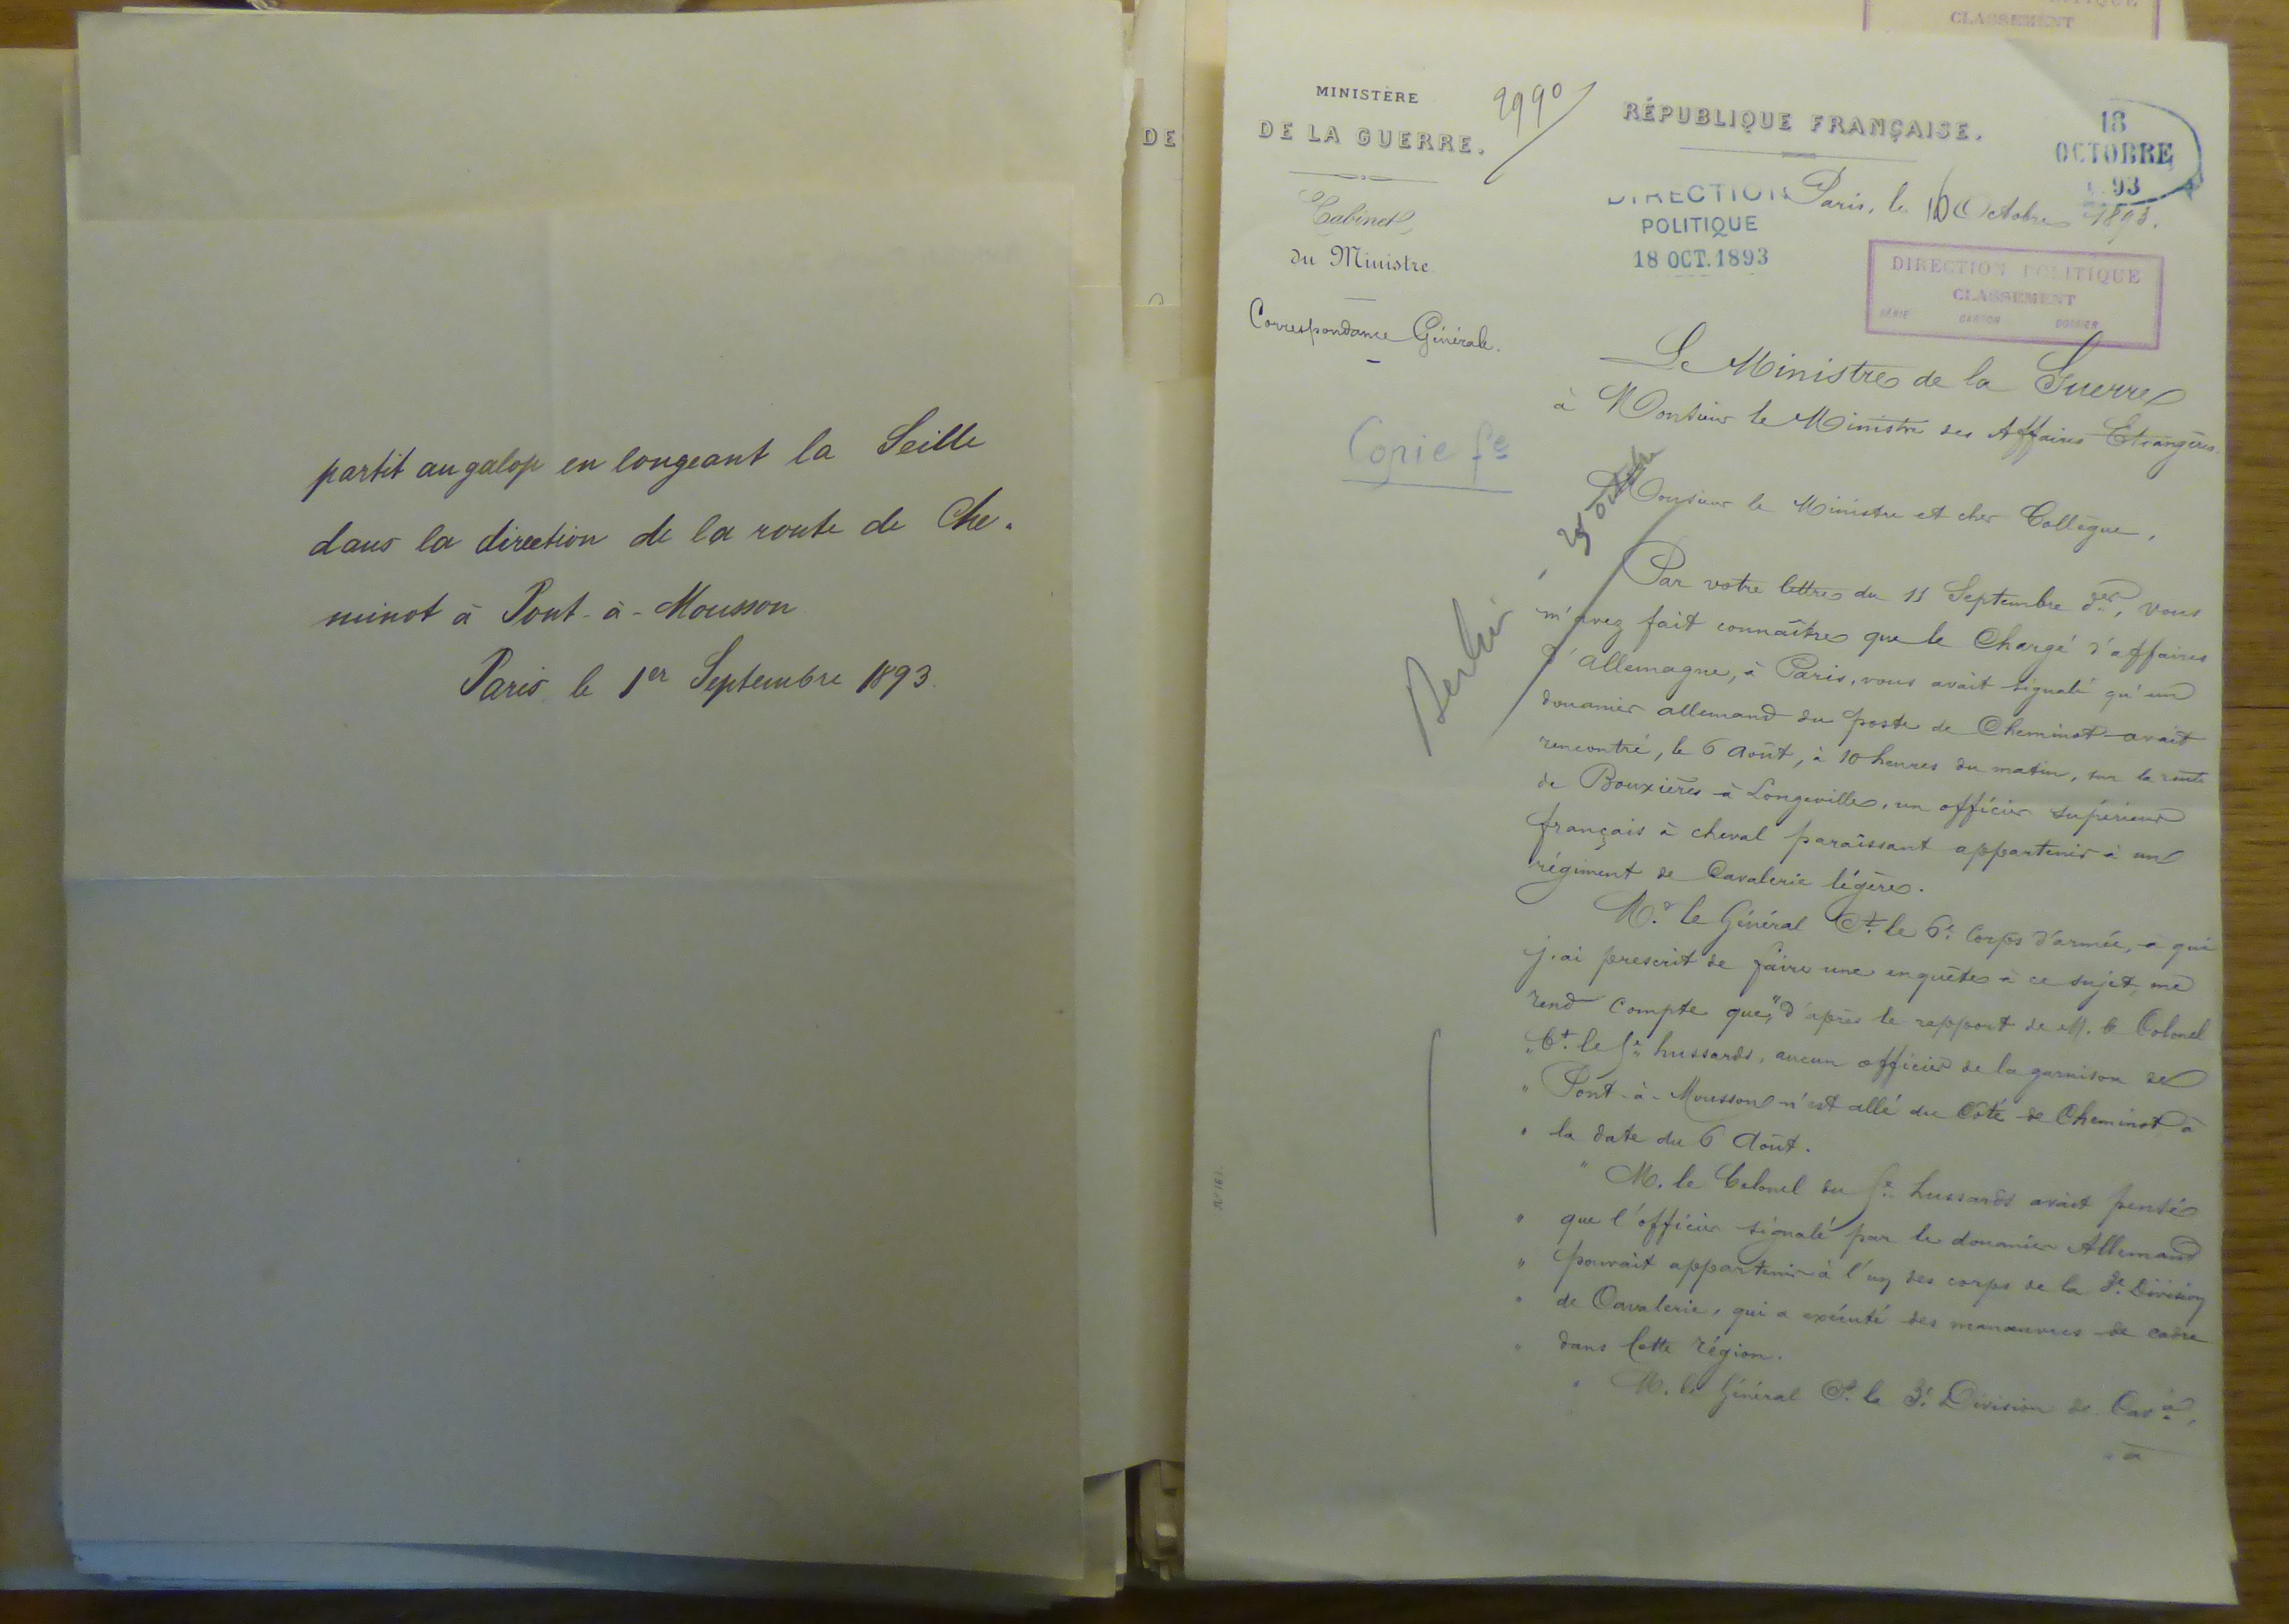 partit au galop en longeant la Seille
dans la direction de la route de Che-
minot à Pont-à-Mousson
Paris le 1er Septembre 1893.
DE
CLASSEMENT
MINISTÈRE
DE LA GUERRE.
2990
RÉPUBLIQUE FRANÇAISE.
18
OCTOBRE
93
Cabinet
du Ministre
Correspondance Générale.
DIRECTION
POLITIQUE
18 OCT. 1893
Paris, le 16 Octobre 1893.
DIRECTION POLITIQUE
CLASSEMENT
SÉRIE CARTON DOSSIER
Le Ministre de la Guerre
à Monsieur le Ministre des Affaires Etrangères.
Copie fe
Berlin
Monsieur le Ministre et cher Collègue,
Par votre lettre du 11 Septembre der, vous
m'avez fait connaître que le Chargé d'affaires
d'Allemagne, à Paris, vous avait signalé qu'un
douanier allemand du poste de Cheminot avait
rencontré, le 6 Août, à 10 heures du matin, sur la route
de Bouxières à Longeville, un officier supérieur
français à cheval paraissant appartenir à un
régiment de Cavalerie légère.
Mr le Général Ct le 6e Corps d'armée, à qui
j'ai prescrit de faire une enquête à ce sujet, me
rend compte que, "d'après le rapport de M. le Colonel
" Ct le hussards, aucun officier de la garnison de
" Pont-à-Mousson n'est allé du Côté de Cheminot à
" la date du 6 Août.
" M. le Colonel du hussards avait pensé
" que l'officier signalé par le douanier Allemand
" pouvait appartenir à l'un des corps de la 3e Division
" de Cavalerie, qui a exécuté des manœuvres de cadre
" dans cette région.
" M. le Général Ct la 3e Division de Cavie,
" à